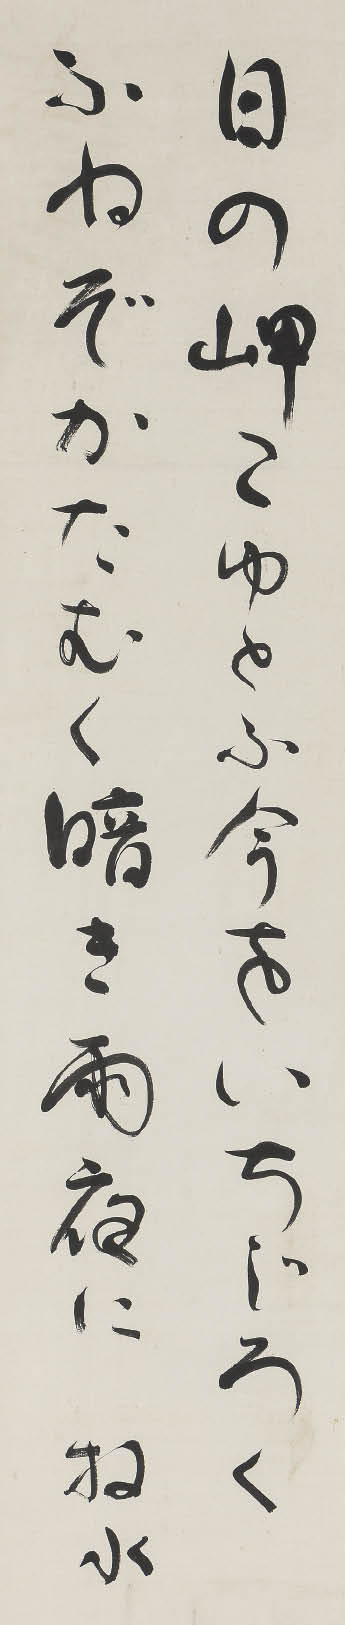 日の岬こゆとふ今をいちじろく
ふねぞかたむく暗き雨夜に 牧水